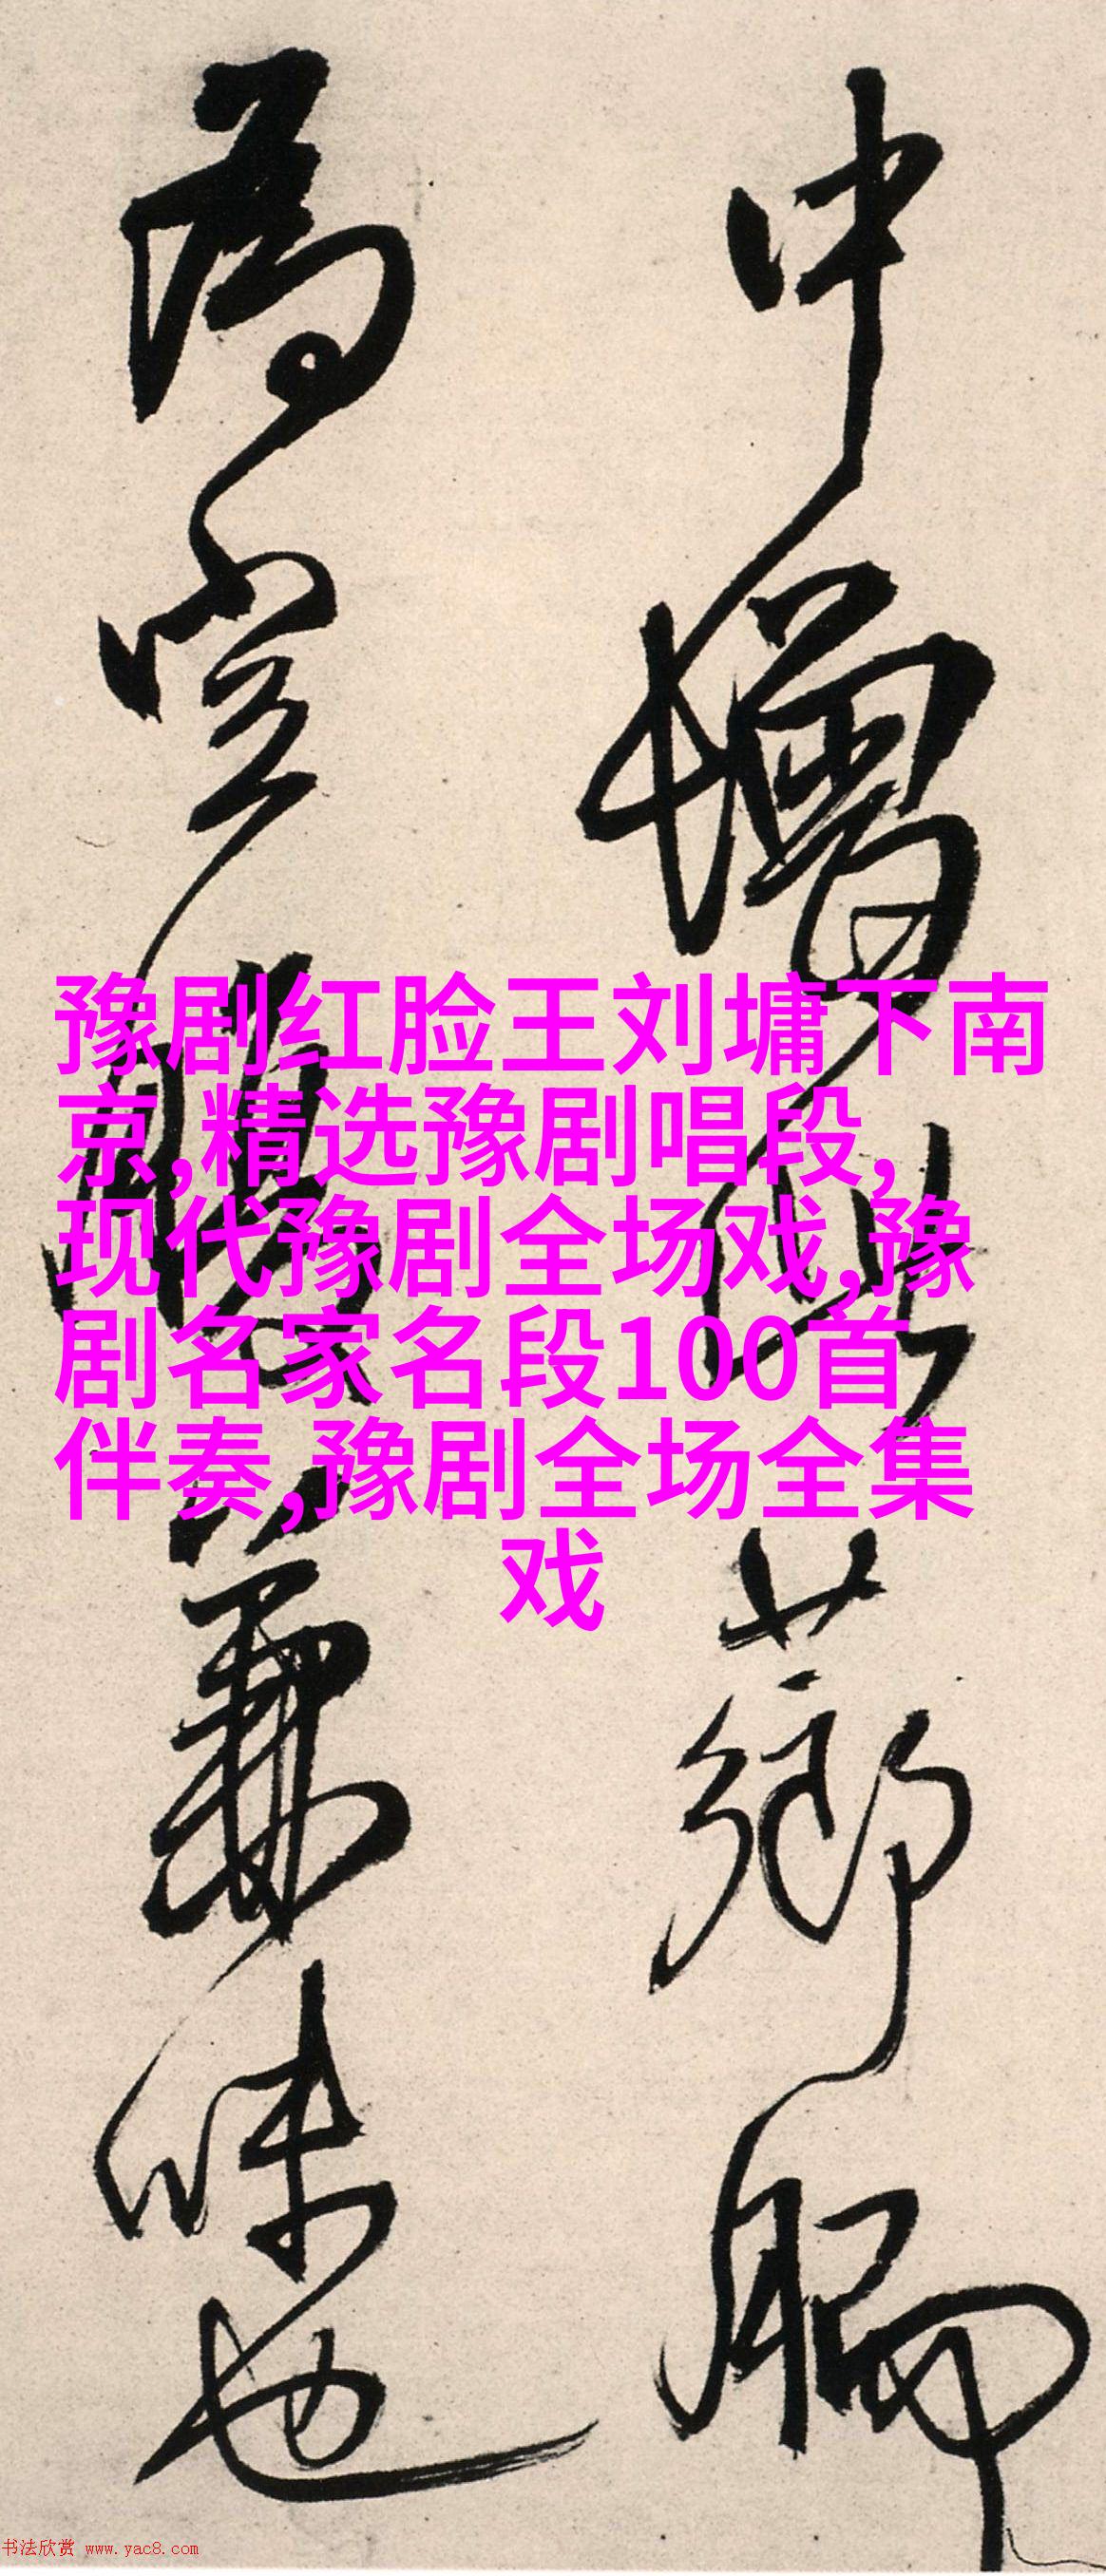 中增此芗乡膈
为空肠兼味也
豫剧红脸王刘墉下南
京,精选豫剧唱段,
现代豫剧全场戏,豫
剧名家名段100首
伴奏,豫剧全场全集
戏
书法欣赏 www.yac8.com